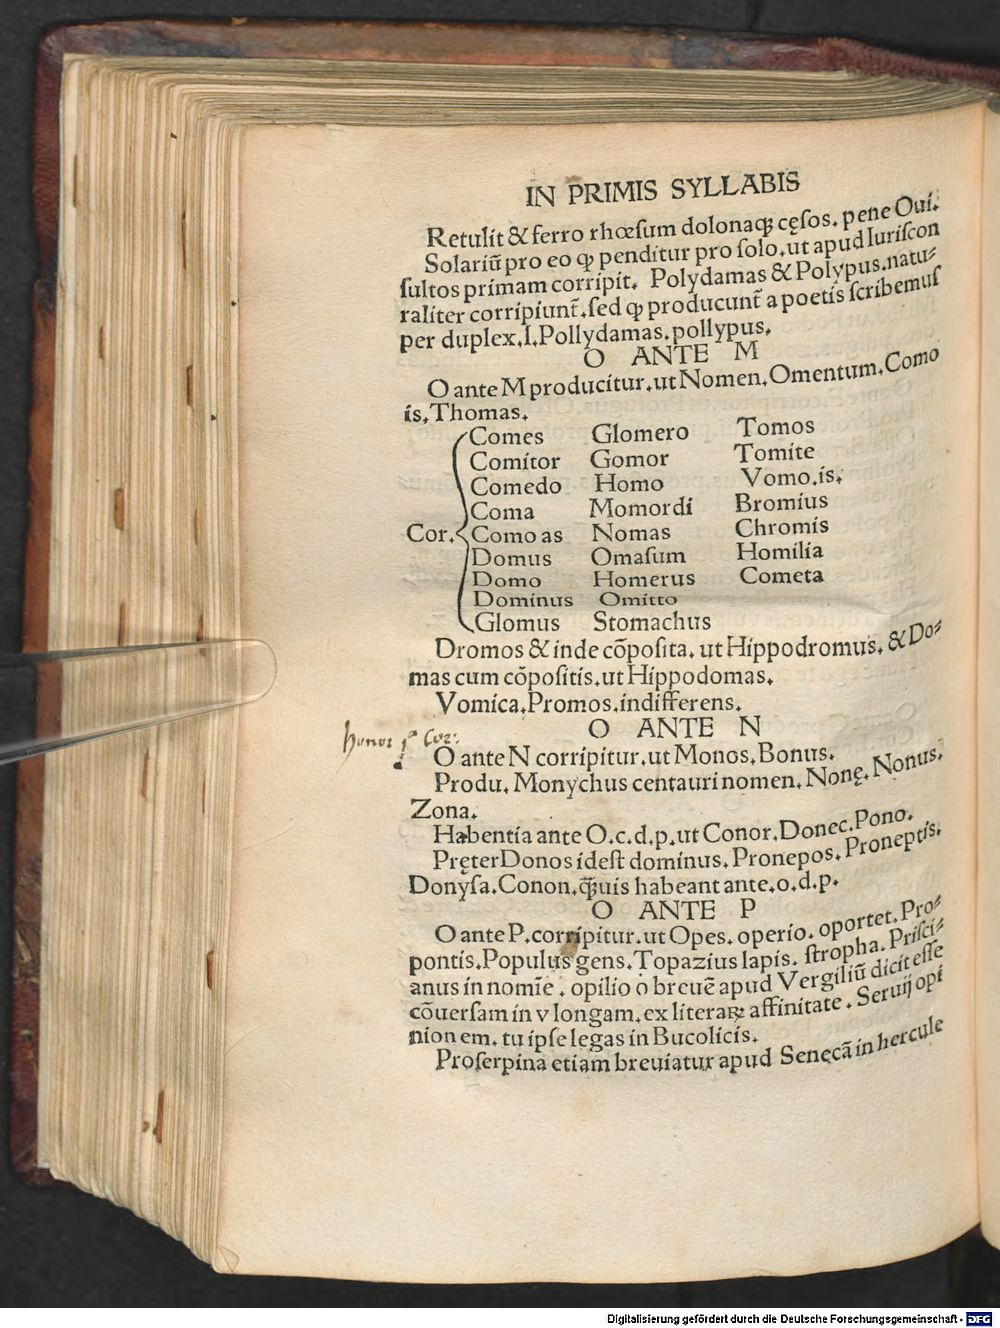 IN PRIMIS SYLLABIS
Retulit & ferro rhœsum dolonaqꝫ cęsos. pene Oui.
Solariũ pro eo ꝙ penditur pro solo. ut apud Iuriſcon
ſultos primam corripit. Polydamas & Polypus. natu⸗
raliter corripiunt̃. ſed ꝙ producunt̃ a poetis ſcribemuſ
per duplex. l. Pollydamas. pollypus.
O ANTE M
O ante M producitur. ut Nomen. Omentum. Como
is. Thomas.
Comes Glomero Tomos
Comitor Gomor Tomite
Comedo Homo Vomo. is.
Coma Momordi Bromius
Cor. Como as Nomas Chromis
Domus Omaſum Homilia
Domo Homerus Cometa
Dominus Omitto
Glomus Stomachus
Dromos & inde cõpoſita. ut Hippodromus. & Do⸗
mas cum cõpoſitis. ut Hippodomas.
Vomica. Promos. indifferens.
O ANTE N
honor Cor:
O ante N corripitur. ut Monos. Bonus.
Produ. Monychus centauri nomen. Nonę. Nonus.
Zona.
Habentia ante O. c. d. p. ut Conor. Donec. Pono.
Pręter Donos ideſt dominus. Pronepos. Proneptis.
Donyſa. Conon. qꝫ̃uis habeant ante. o. d. p.
O ANTE P
O ante P. corripitur. ut Opes. operio. oportet. Pro⸗
pontis. Populus gens. Topazius lapis. ſtropha. Priſci⸗
anus in nomĩe. opilio o breuẽ apud Vergiliũ dicit eſſe
cõuerſam in v longam. ex literaꝝ affinitate. Seruij opi
nionem. tu ipſe legas in Bucolicis.
Proſerpina etiam breuiatur apud Senęcã in hercule
Digitalisierung gefördert durch die Deutsche Forschungsgemeinschaft - DFG